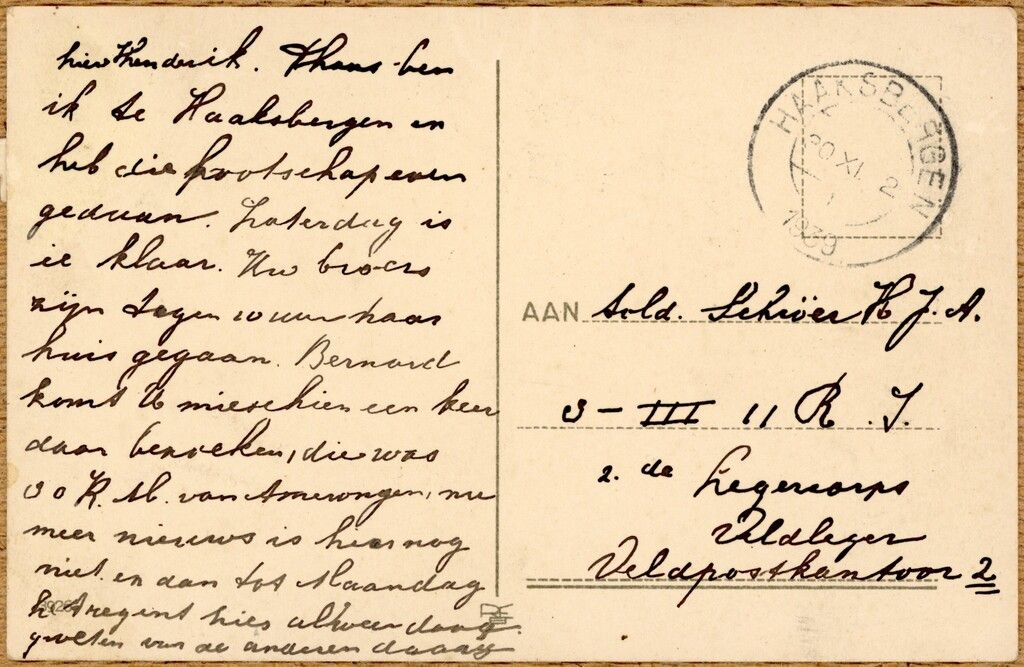 hier Henderik. Thans ben
ik te Haaksbergen en
heb die bootschap even
gedaan. Zaterdag is
ie klaar. Uw broers
zijn tegen 10 uur naar
huis gegaan. Bernard
komt U misschien een keer
daar bezoeken, die was
van Amerongen, nu
meer nieuws is hier nog
niet en dan tot Maandag
het regent hier alweer
groeten van de anderen daaag
HAAKSBERGEN
20 XI 2
1939
AAN Sold. Schröer H J. A.
3 - III 11 R. I.
2.de Legercorps
Veldleger
Veldpostkantoor 2